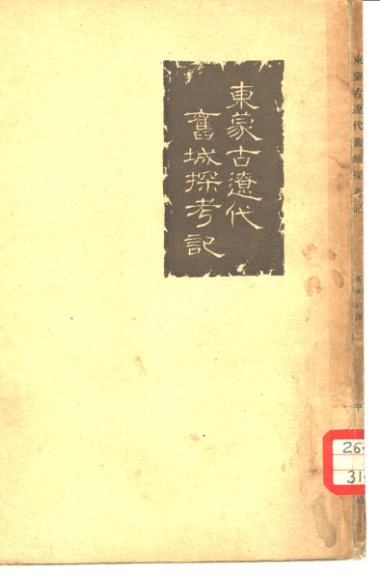 東蒙古遼代
舊城探考記
東蒙古遼代舊城探考記
26
31